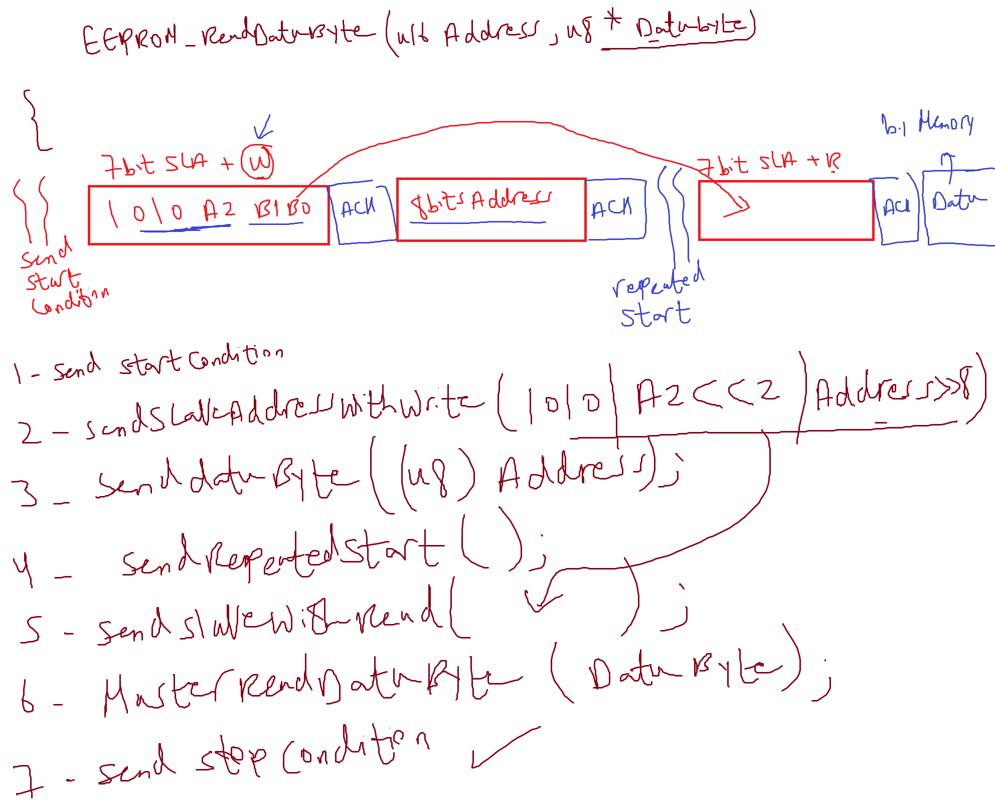 EEPROM_ReadDataByte (u16 Address, u8 * Databyte)
{
7bit SLA + W
1 0 1 0 A2 B1 B0
ACK
8bits Address
ACK
7bit SLA + R
ACK
Data
Memory
send
start
Condition
repeated
start
1 - send start Condition
2 - sendSlaveAddressWithWrite (1010 | A2<<2 | Address>>8)
3 - send dataByte((u8) Address);
4 - sendRepeatedStart ( );
5 - sendslaveWithread( );
6 - MasterReadDataByte (DataByte);
7 - send stop Condition